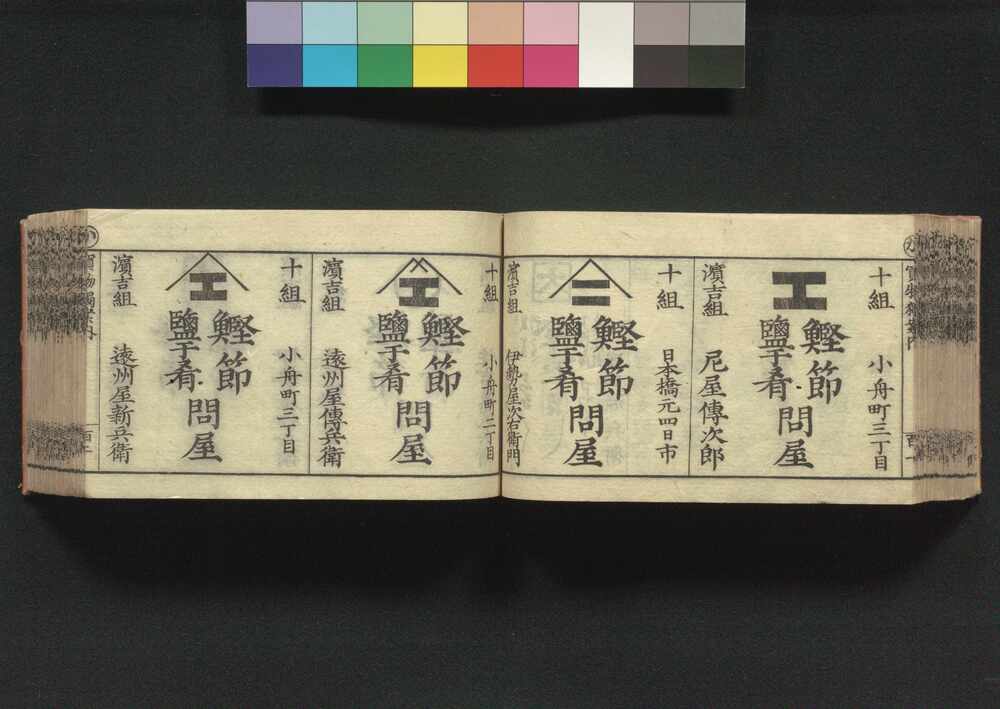 十組 小舟町三丁目
鰹節
鹽干肴
問屋
濵吉組 尼屋傳次郎
十組 日本橋元四日市
鰹節
鹽干肴
問屋
濵吉組 伊勢屋次右衛門
十組 小舟町二丁目
鰹節
鹽干肴
問屋
濵吉組 遠州屋傳兵衛
十組 小舟町三丁目
鰹節
鹽干肴
問屋
濵吉組 遠州屋新兵衛